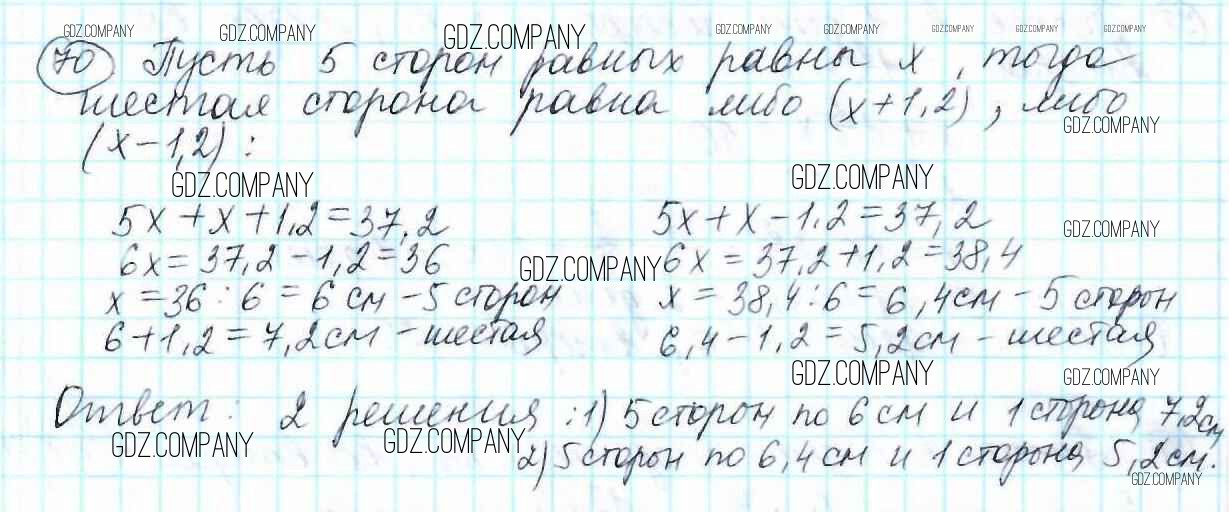 GDZ.COMPANY GDZ.COMPANY GDZ.COMPANY GDZ.COMPANY GDZ.COMPANY GDZ.COMPANY GDZ.COMPANY GDZ.COMPANY
70 Пусть 5 сторон равных равны x, тогда
шестая сторона равна либо (x+1,2), либо
GDZ.COMPANY
(x-1,2):
GDZ.COMPANY GDZ.COMPANY
5x+x+1,2=37,2 5x+x-1,2=37,2
GDZ.COMPANY
6x=37,2-1,2=36 6x=37,2+1,2=38,4
GDZ.COMPANY
x=36:6=6 см - 5 сторон x=38,4:6=6,4см - 5 сторон
6+1,2=7,2см - шестая 6,4-1,2=5,2см - шестая
GDZ.COMPANY GDZ.COMPANY
Ответ: 2 решения: 1) 5 сторон по 6 см и 1 сторона 7,2см
GDZ.COMPANY GDZ.COMPANY
2) 5 сторон по 6,4см и 1 сторона 5,2см.
GDZ.COMPANY